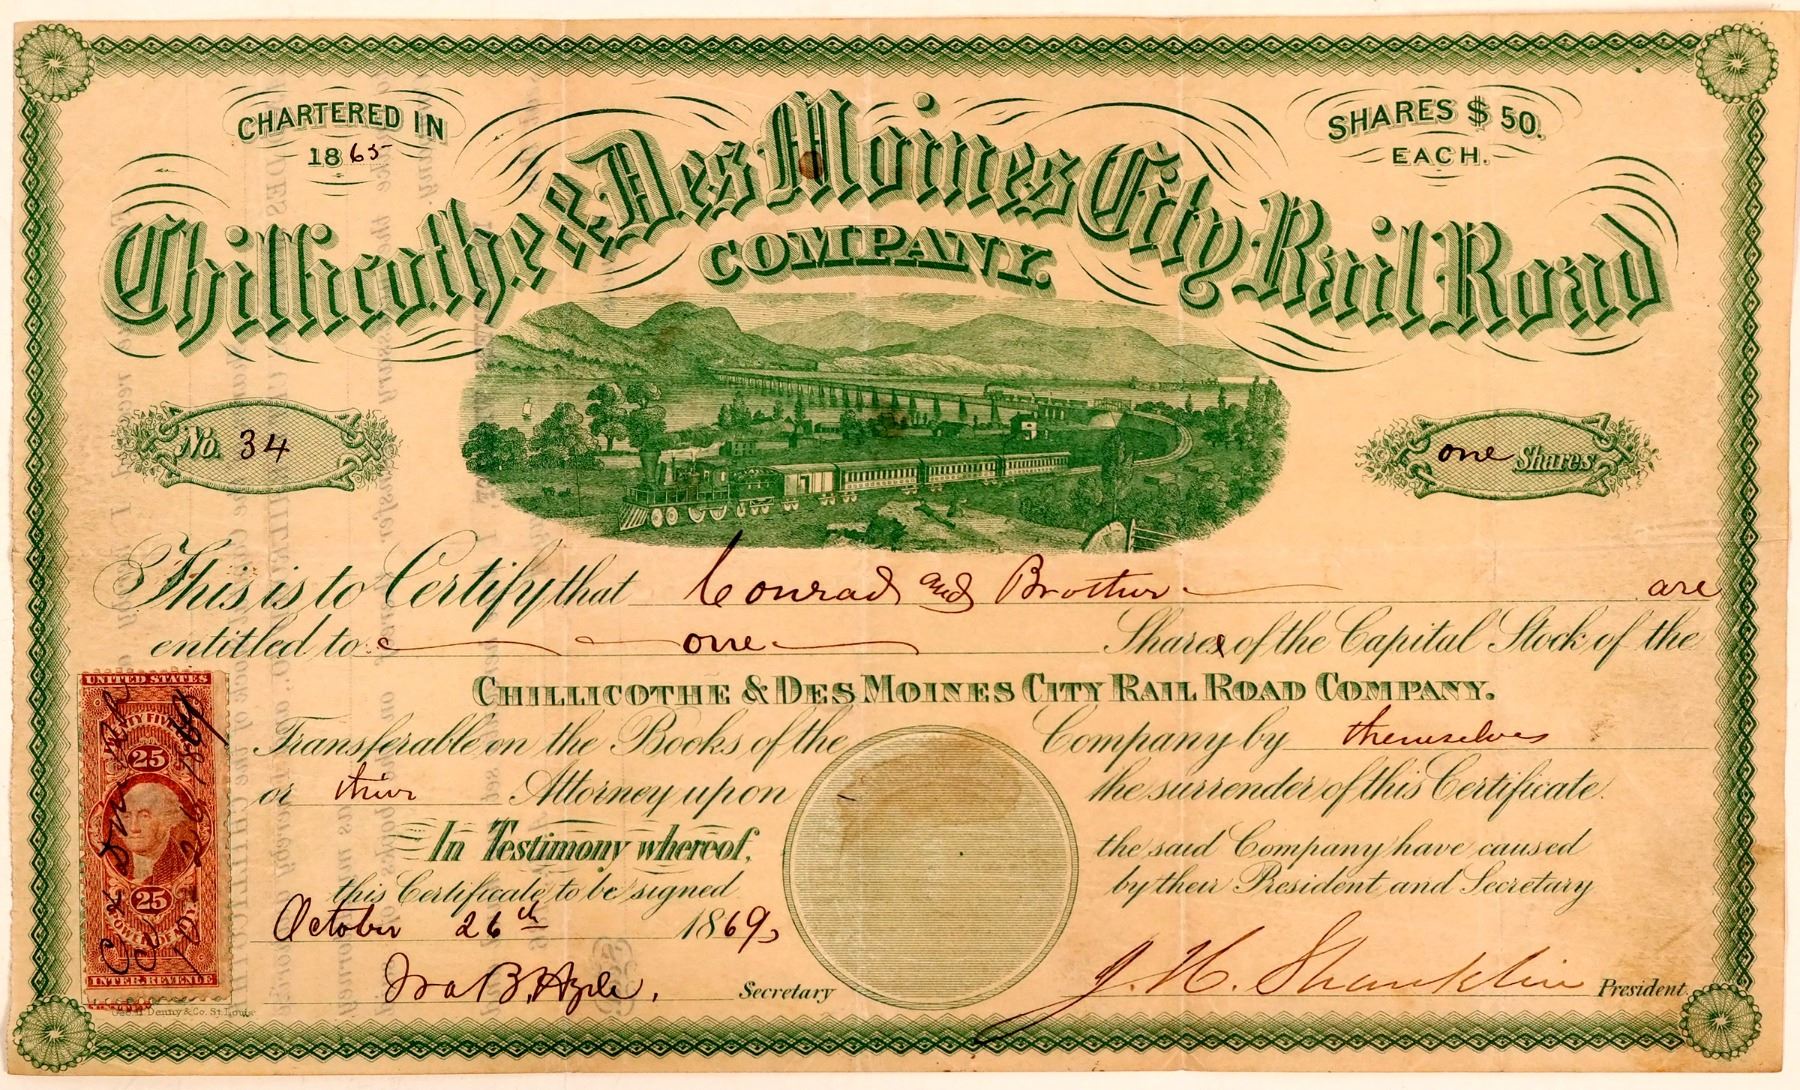 CHARTERED IN
1865
SHARES $ 50.
EACH.
Chillicothe & Des Moines City Rail Road
COMPANY.
No. 34
one Shares
This is to Certify that Conrad and Brother are
entitled to one Shares of the Capital Stock of the
CHILLICOTHE & DES MOINES CITY RAIL ROAD COMPANY.
Transferable on the Books of the Company by themselves
or thier Attorney upon the surrender of this Certificate.
In Testimony whereof, the said Company have caused
this Certificate to be signed by their President and Secretary
October 26th 1869,
Ira B. Hyde, Secretary
J. H. Shanklin President
UNITED STATES
25
25
POWER OF ATT'Y.
INTER. REVENUE
Denny & Co. St. Louis